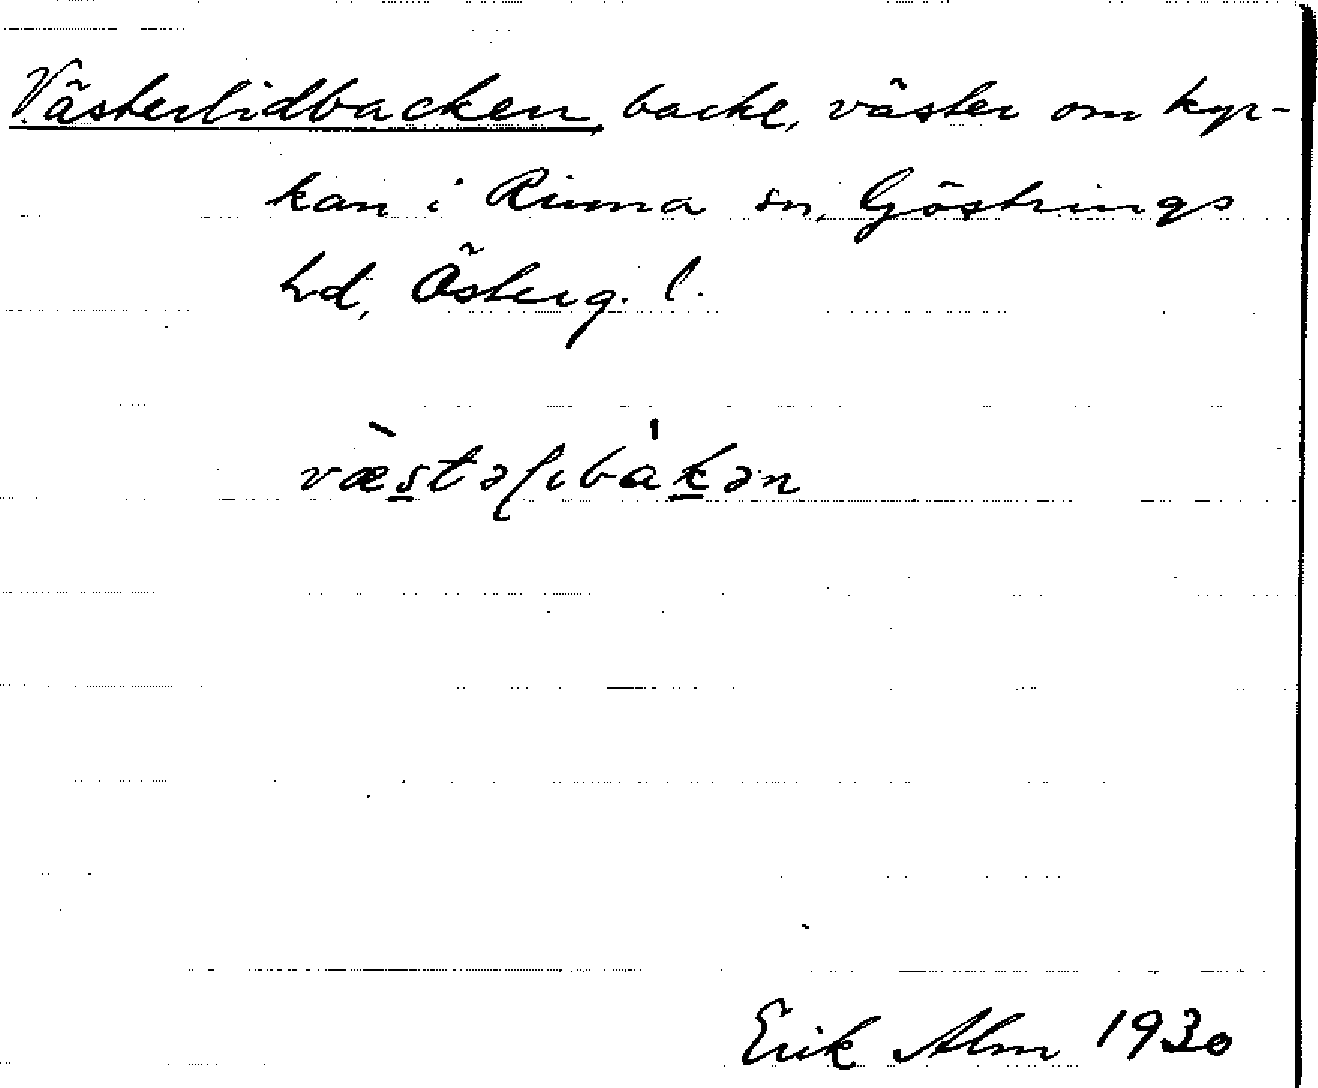 Västerlidbacken, backe, väster om kyr-
kan i Rinna sn, Göstrings
hd, Österg. l.
væ̀stəɽibàkən
Erik Alm 1930